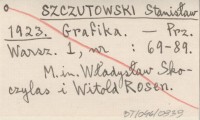 SZCZUTOWSKI Stanisław
1923. Grafika. — Prz.
Warsz. 1, nr : 69-89.
M.in. Władysław Sko-
czylas i Witold Rosen.